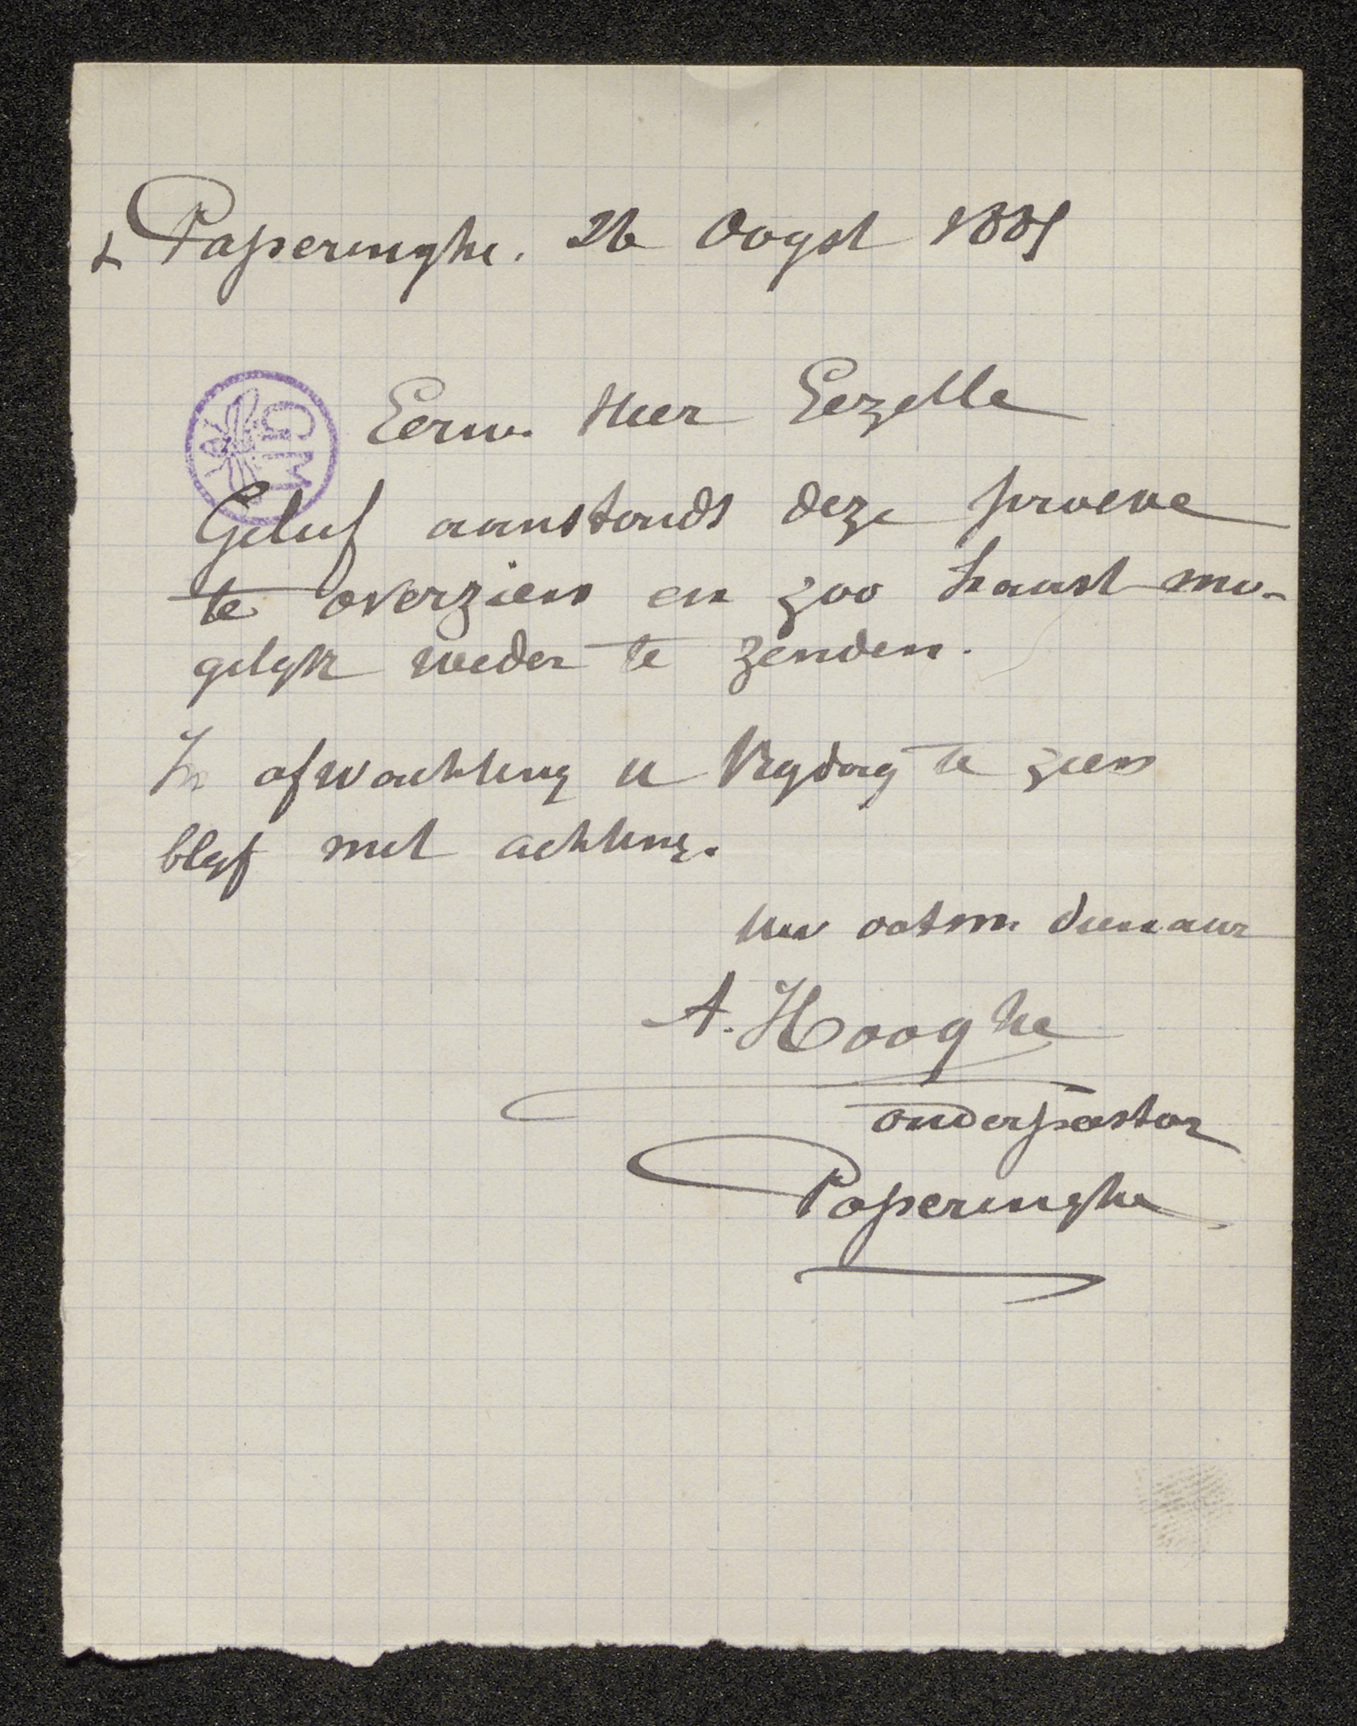 + Poperinghe. 26 Oogst 1885
GM
Eerw. Heer Gezelle
Gelief aanstonds deze proeve
te overzien en zoo haast mo-
gelyk weder te zenden.
In afwachting u Vrydag te zien
blyf met achting.
Uw ootm. dienaar
A. Hooghe
onderpastor
Poperinghe